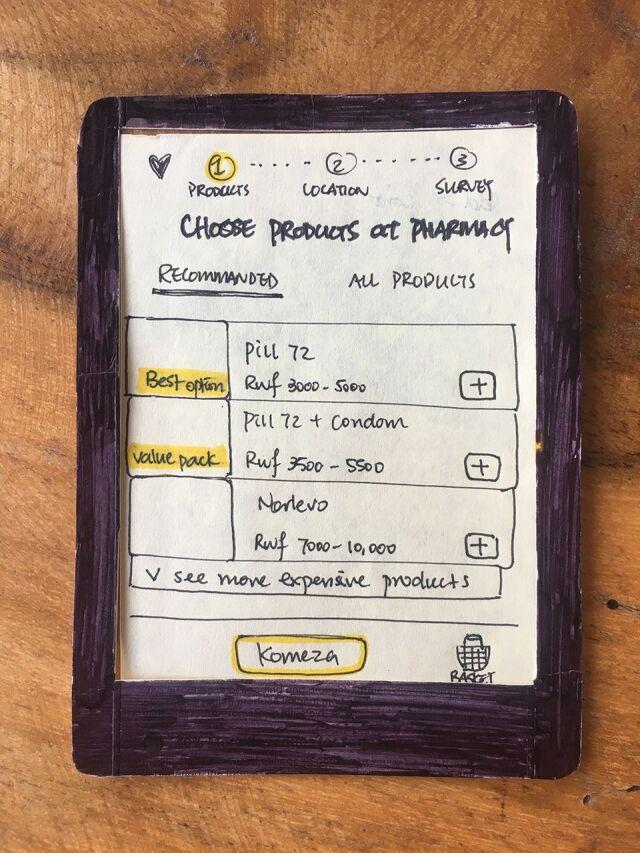 1 2 3
PRODUCTS LOCATION SURVEY
CHOOSE PRODUCTS at PHARMACY
RECOMMANDED ALL PRODUCTS
Pill 72
Best option Rwf 3000 - 5000 +
Pill 72 + Condom
value pack Rwf 3500 - 5500 +
Norlevo
Rwf 7000 - 10,000 +
v see more expensive products
Komeza
BASKET